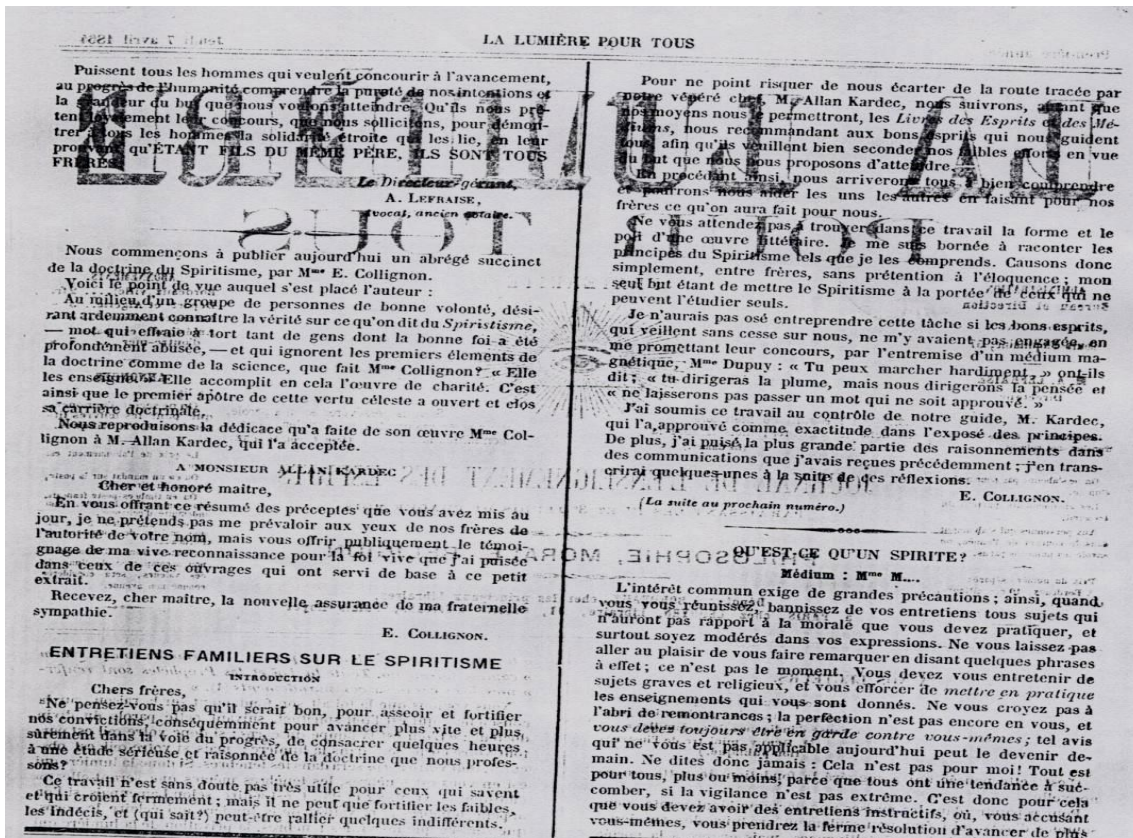 LA LUMIÈRE POUR TOUS
Puissent tous les hommes qui veulent concourir à l'avancement,
au progrès de l'humanité comprendre la pureté de nos intentions et
la grandeur du but que nous voulons atteindre. Qu'ils nous prê-
tent loyalement leur concours, que nous sollicitons, pour démon-
trer à tous les hommes la solidarité étroite qui les lie, en leur
prouvant qu'ÉTANT FILS DU MÊME PÈRE, ILS SONT TOUS
FRÈRES.
Le Directeur-gérant,
A. LEFRAISE,
avocat, ancien notaire.
Nous commençons à publier aujourd'hui un abrégé succinct
de la doctrine du Spiritisme, par Mme E. Collignon.
Voici le point de vue auquel s'est placé l'auteur :
Au milieu d'un groupe de personnes de bonne volonté, dési-
rant ardemment connaître la vérité sur ce qu'on dit du Spiristisme,
— mot qui effraie à tort tant de gens dont la bonne foi a été
profondément abusée, — et qui ignorent les premiers élements de
la doctrine comme de la science, que fait Mme Collignon? « Elle
les enseigne. » Elle accomplit en cela l'œuvre de charité. C'est
ainsi que le premier apôtre de cette vertu céleste a ouvert et clos
sa carrière doctrinale.
Nous reproduisons la dédicace qu'a faite de son œuvre Mme Col-
lignon à M. Allan Kardec, qui l'a acceptée.
A MONSIEUR ALLAN KARDEC
Cher et honoré maitre,
En vous offrant ce résumé des préceptes que vous avez mis au
jour, je ne prétends pas me prévaloir aux yeux de nos frères de
l'autorité de votre nom, mais vous offrir publiquement le témoi-
gnage de ma vive reconnaissance pour la foi vive que j'ai puisée
dans ceux de ces ouvrages qui ont servi de base à ce petit
extrait.
Recevez, cher maître, la nouvelle assurance de ma fraternelle
sympathie.
E. COLLIGNON.
ENTRETIENS FAMILIERS SUR LE SPIRITISME
INTRODUCTION
Chers frères,
Ne pensez-vous pas qu'il serait bon, pour asseoir et fortifier
nos convictions, conséquemment pour avancer plus vite et plus
sûrement dans la voie du progrès, de consacrer quelques heures
à une étude sérieuse et raisonnée de la doctrine que nous profes-
sons?
Ce travail n'est sans doute pas très utile pour ceux qui savent
et qui croient fermement ; mais il ne peut que fortifier les faibles,
les indécis, et (qui sait?) peut-être rallier quelques indifférents.
Pour ne point risquer de nous écarter de la route tracée par
notre vénéré chef, M. Allan Kardec, nous suivrons, autant que
nos moyens nous le permettront, les Livres des Esprits et des Mé-
diums, nous recommandant aux bons esprits qui nous guident
tous, afin qu'ils veuillent bien seconder nos faibles efforts en vue
du but que nous nous proposons d'atteindre.
En procédant ainsi, nous arriverons tous à bien comprendre
et pourrons nous aider les uns les autres en faisant pour nos
frères ce qu'on aura fait pour nous.
Ne vous attendez pas à trouver dans ce travail la forme et le
poli d'une œuvre littéraire. Je me suis bornée à raconter les
principes du Spiritisme tels que je les comprends. Causons donc
simplement, entre frères, sans prétention à l'éloquence ; mon
seul but étant de mettre le Spiritisme à la portée de ceux qui ne
peuvent l'étudier seuls.
Je n'aurais pas osé entreprendre cette tâche si les bons esprits,
qui veillent sans cesse sur nous, ne m'y avaient pas engagée, en
me promettant leur concours, par l'entremise d'un médium ma-
gnétique, Mme Dupuy : « Tu peux marcher hardiment, » ont-ils
dit ; « tu dirigeras la plume, mais nous dirigerons la pensée et
« ne laisserons pas passer un mot qui ne soit approuvé. »
J'ai soumis ce travail au contrôle de notre guide, M. Kardec,
qui l'a approuvé comme exactitude dans l'exposé des principes.
De plus, j'ai puisé la plus grande partie des raisonnements dans
des communications que j'avais reçues précédemment ; j'en trans-
crirai quelques-unes à la suite de ces réflexions.
E. COLLIGNON.
(La suite au prochain numéro.)
QU'EST-CE QU'UN SPIRITE?
Médium : Mme M....
L'intérêt commun exige de grandes précautions ; ainsi, quand
vous vous réunissez, bannissez de vos entretiens tous sujets qui
n'auront pas rapport à la morale que vous devez pratiquer, et
surtout soyez modérés dans vos expressions. Ne vous laissez pas
aller au plaisir de vous faire remarquer en disant quelques phrases
à effet ; ce n'est pas le moment. Vous devez vous entretenir de
sujets graves et religieux, et vous efforcer de mettre en pratique
les enseignements qui vous sont donnés. Ne vous croyez pas à
l'abri de remontrances ; la perfection n'est pas encore en vous, et
vous devez toujours être en garde contre vous-mêmes ; tel avis
qui ne vous est pas applicable aujourd'hui peut le devenir de-
main. Ne dites donc jamais : Cela n'est pas pour moi! Tout est
pour tous, plus ou moins, parce que tous ont une tendance à suc-
comber, si la vigilance n'est pas extrême. C'est donc pour cela
que vous devez avoir des entretiens instructifs, où, vous accusant
vous-mêmes, vous prendrez la ferme résolution d'avancer de plus